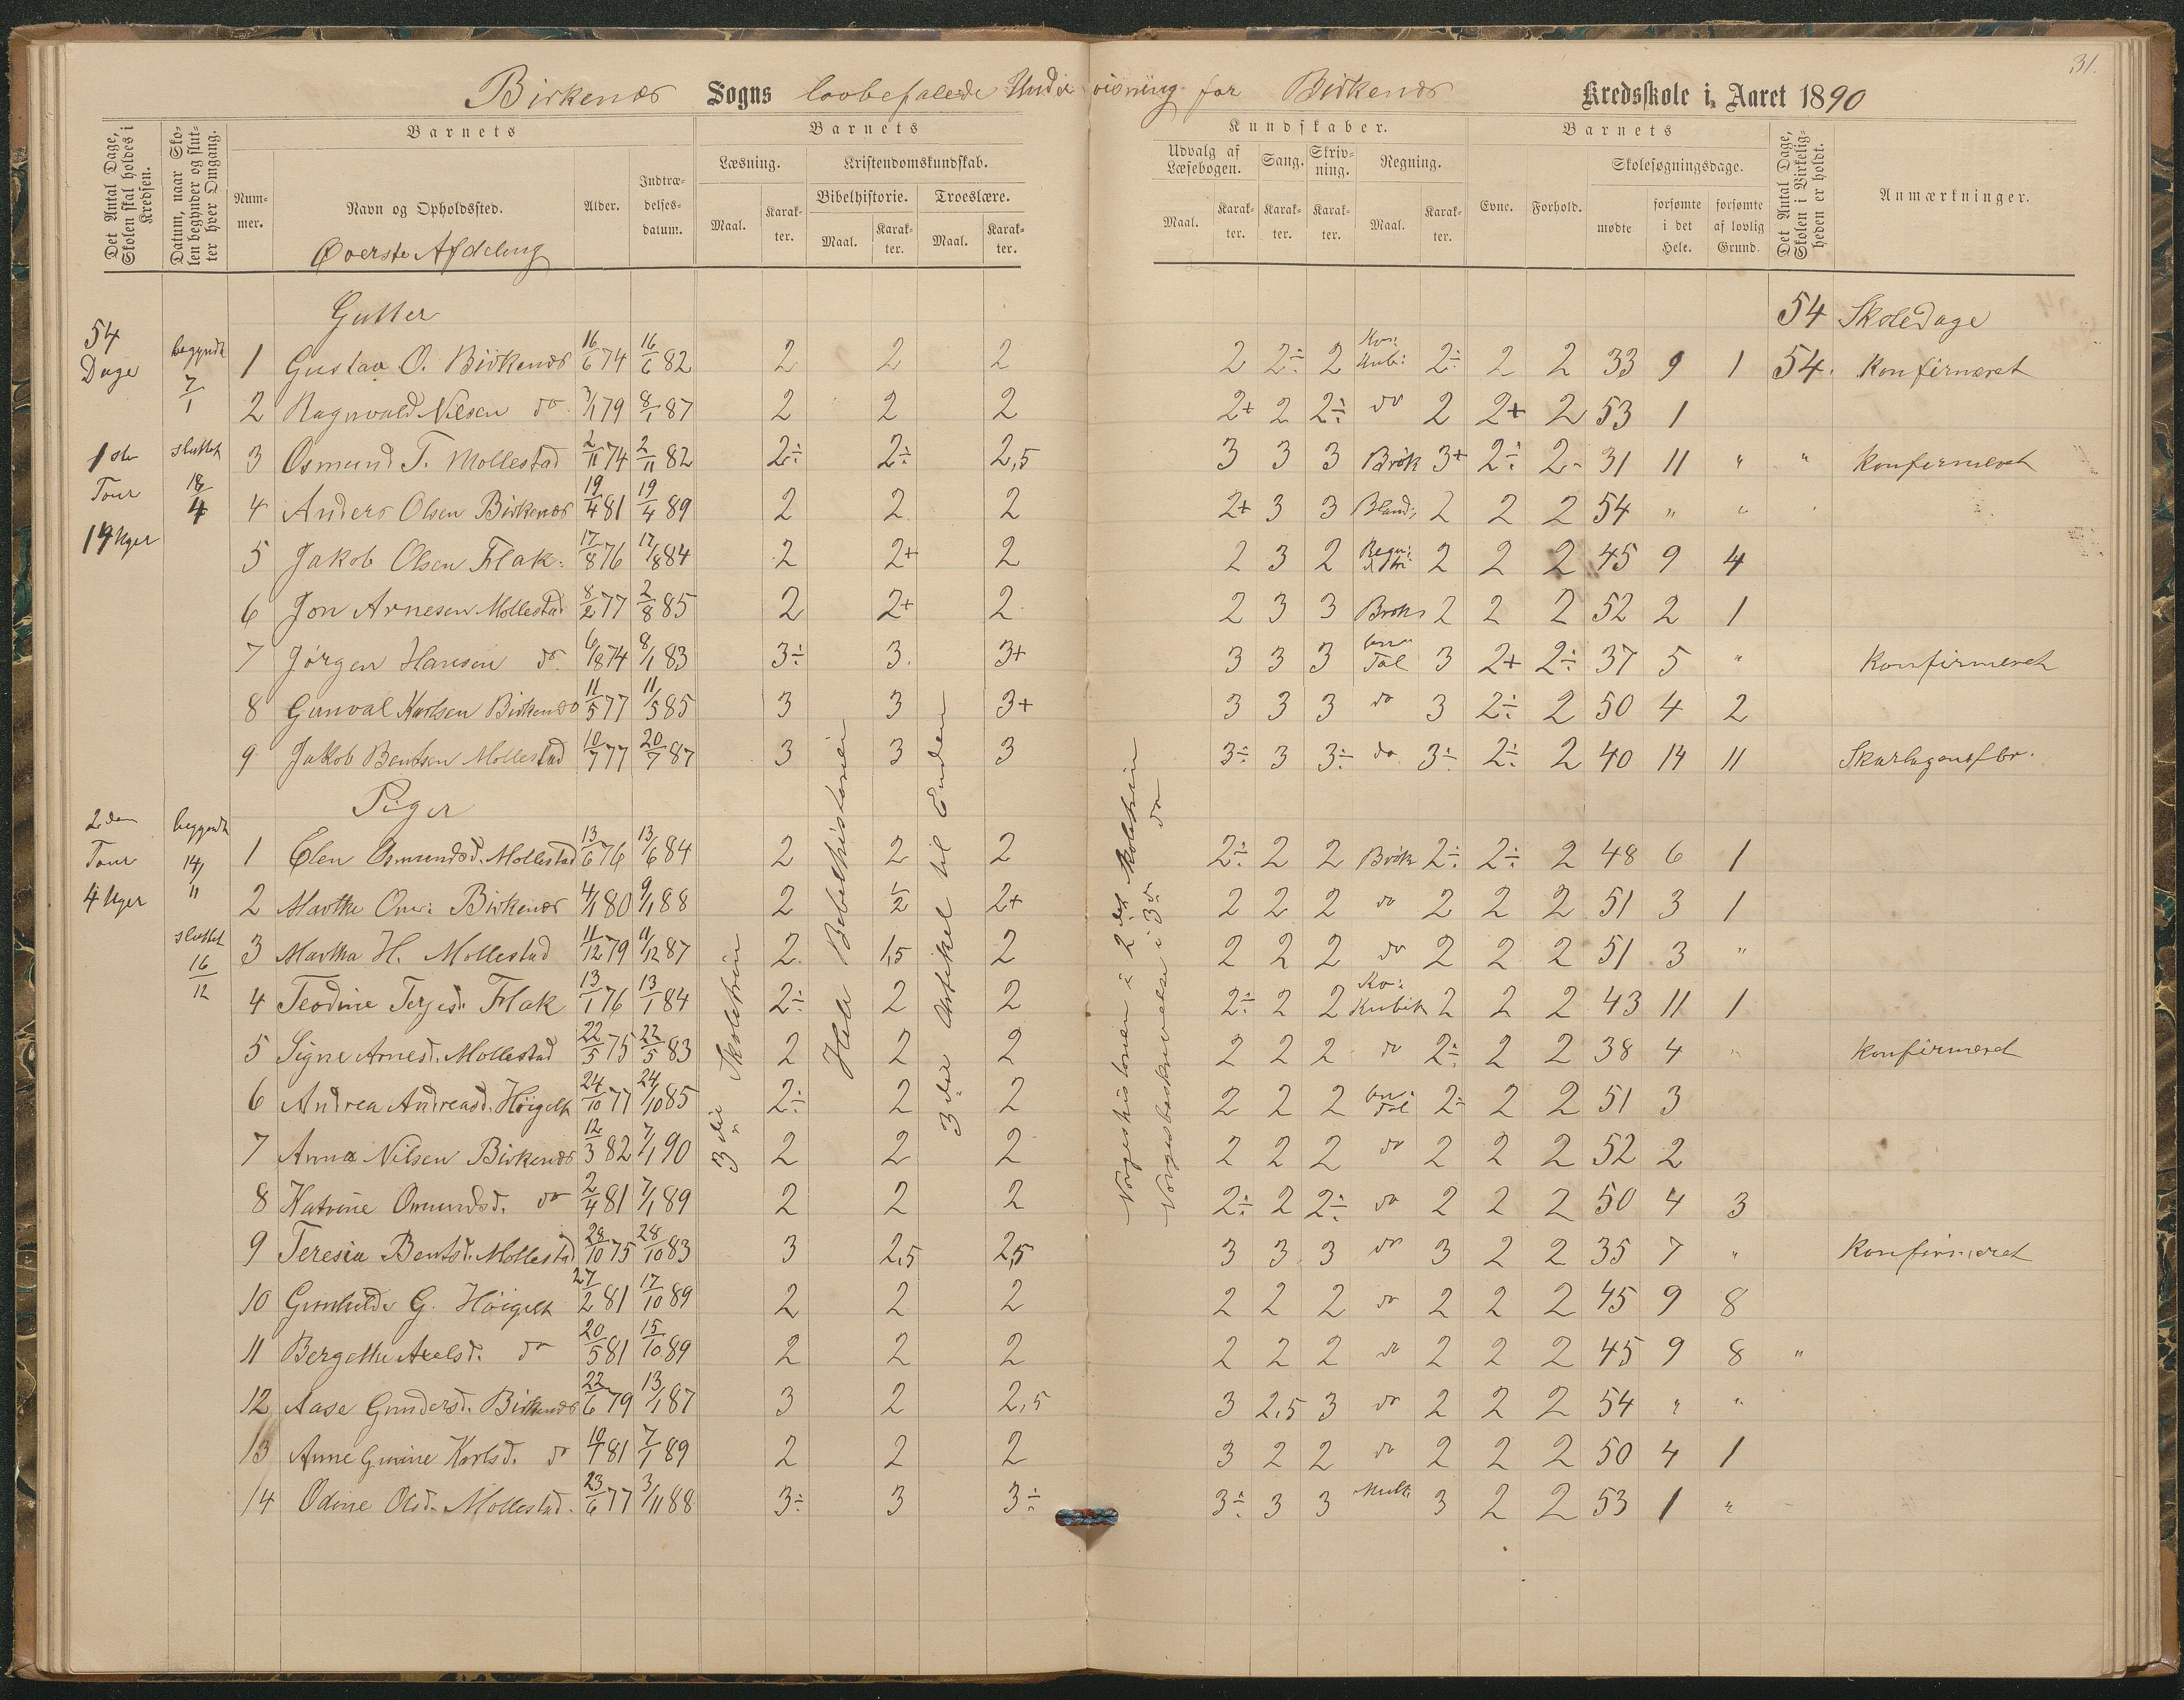 31.
Birkenes Sogns lovbefalede Undervisning for Birkenes Kredsskole i Aaret 1890
Det Antal Dage, Skolen skal holdes i Kredsen.
Datum, naar Skolen begynder og slutter hver Omgang.
Barnets
Nummer.
Navn og Opholdssted.
Øverste Afdeling
Alder.
Indtrædelsesdatum.
Barnets
Læsning.
Maal.
Karakter.
Kristendomskundskab.
Bibelhistorie.
Maal.
Karakter.
Troeslære.
Maal.
Karakter.
Kundskaber.
Udvalg af Læsebogen.
Maal.
Karakter.
Sang.
Karakter.
Skrivning.
Karakter.
Regning.
Maal.
Karakter.
Barnets
Evne.
Forhold.
Skolesøgningsdage.
mødte
forsømte i det Hele.
forsømte af lovlig Grund.
Det Antal Dage, Skolen i Virkeligheden er holdt.
Anmærkninger.
54 Dage
1ste Tour
14 Uger
begyndt 7/1
sluttet 18/4
2den Tour
4 Uger
begyndt 14/11
sluttet 16/12
3die Skoletrin
Hele Bibelhistorien
3die Artikel til Enden
Norgeshistorien i 2det Skoletrin
Norgesbeskrivelse i 3die do
Gutter 54 Skoledage
1 Gustav O. Birkenes 16/6 74 16/6 82 2 2 2 2 2÷ 2 Kub: 2÷ 2 2 33 9 1 54. Konfirmeret
2 Ragnvald Nilsen do 7/1 79 8/1 87 2 2 2 2+ 2 2÷ do 2 2+ 2 53 1
3 Osmund T. Mollestad 2/11 74 2/11 82 2÷ 2÷ 2,5 3 3 3 Brøk 3+ 2÷ 2- 31 11 " " Konfirmeret
4 Anders Olsen Birkenes 19/4 81 19/4 89 2 2 2 2+ 3 3 Bland, 2 2 2 54 " "
5 Jakob Olsen Flak: 17/8 76 17/8 84 2 2+ 2 2 3 2 Regu: 2 2 2 45 9 4
6 Jon Arnesen Mollestad 8/2 77 2/8 85 2 2+ 2 2 3 3 Brøk 2 2 2 52 2 1
7 Jørgen Hansen do 6/8 74 8/1 83 3÷ 3. 3+ 3 3 3 Tal 3 2+ 2÷ 37 5 " Konfirmeret
8 Gunval Karlsen Birkenes 11/5 77 11/5 85 3 3 3+ 3 3 3 do 3 2÷ 2 50 4 2
9 Jakob Bentsen Mollestad 10/7 77 20/7 87 3 3 3 3÷ 3 3÷ do 3÷ 2÷ 2 40 14 11 Skarlagensfbr.
Piger
1 Elen Osmundsd. Mollestad 13/6 76 13/6 84 2 2 2 2÷ 2 2 Brøk 2÷ 2÷ 2 48 6 1
2 Marthe Om: Birkenes 4/1 80 9/1 88 2 1/2 2+ 2 2 2 do 2 2 2 51 3 1
3 Martha H. Mollestad 11/12 79 11/12 87 2. 1,5 2 2 2 2 do 2 2 2 51 3 "
4 Teodine Terjesd. Flak 13/1 76 13/1 84 2÷ 2 2 2÷ 2 2 Kubik 2 2 2 43 11 1
5 Signe Arnesd. Mollestad 22/5 75 22/5 83 2 2 2 2 2 2 do 2÷ 2 2 38 4 " Konfirmeret
6 Andrea Andreasd. Høigelt 24/10 77 24/10 85 2÷ 2 2 2 2 2 Tal 2÷ 2 2 51 3
7 Anna Nilsen Birkenes 12/3 82 7/1 90 2 2 2 2 2 2 do 2 2 2 52 2
8 Katrine Omundsd. do 2/4 81 7/1 89 2 2 2 2÷ 2 2÷ do 2 2 2 50 4 3
9 Teresia Bentsd. Mollestad 28/10 75 28/10 83 3 2,5 2,5 3 3 3 do 3 2 2 35 7 " Konfirmeret
10 Gunhilde G. Høigelt 27/2 81 17/10 89 2 2 2 2 2 2 do 2 2 2 45 9 8
11 Bergethe Axelsd. do 20/5 81 15/10 89 2 2 2 2 2 2 do 2 2 2 45 9 8 "
12 Aase Gundersd. Birkenes 22/6 79 13/1 87 3 2 2,5 3 2,5 3 do 2 2 2 54 " "
13 Anne Gurine Karlsd. do 10/1 81 7/1 89 2 2 2 3 2 2 do 2 2 2 50 4 1
14 Odine Olsd. Mollestad. 23/6 77 3/11 88 3÷ 3 3÷ 3÷ 3 3 Mult: 3 2 2 53 1 "